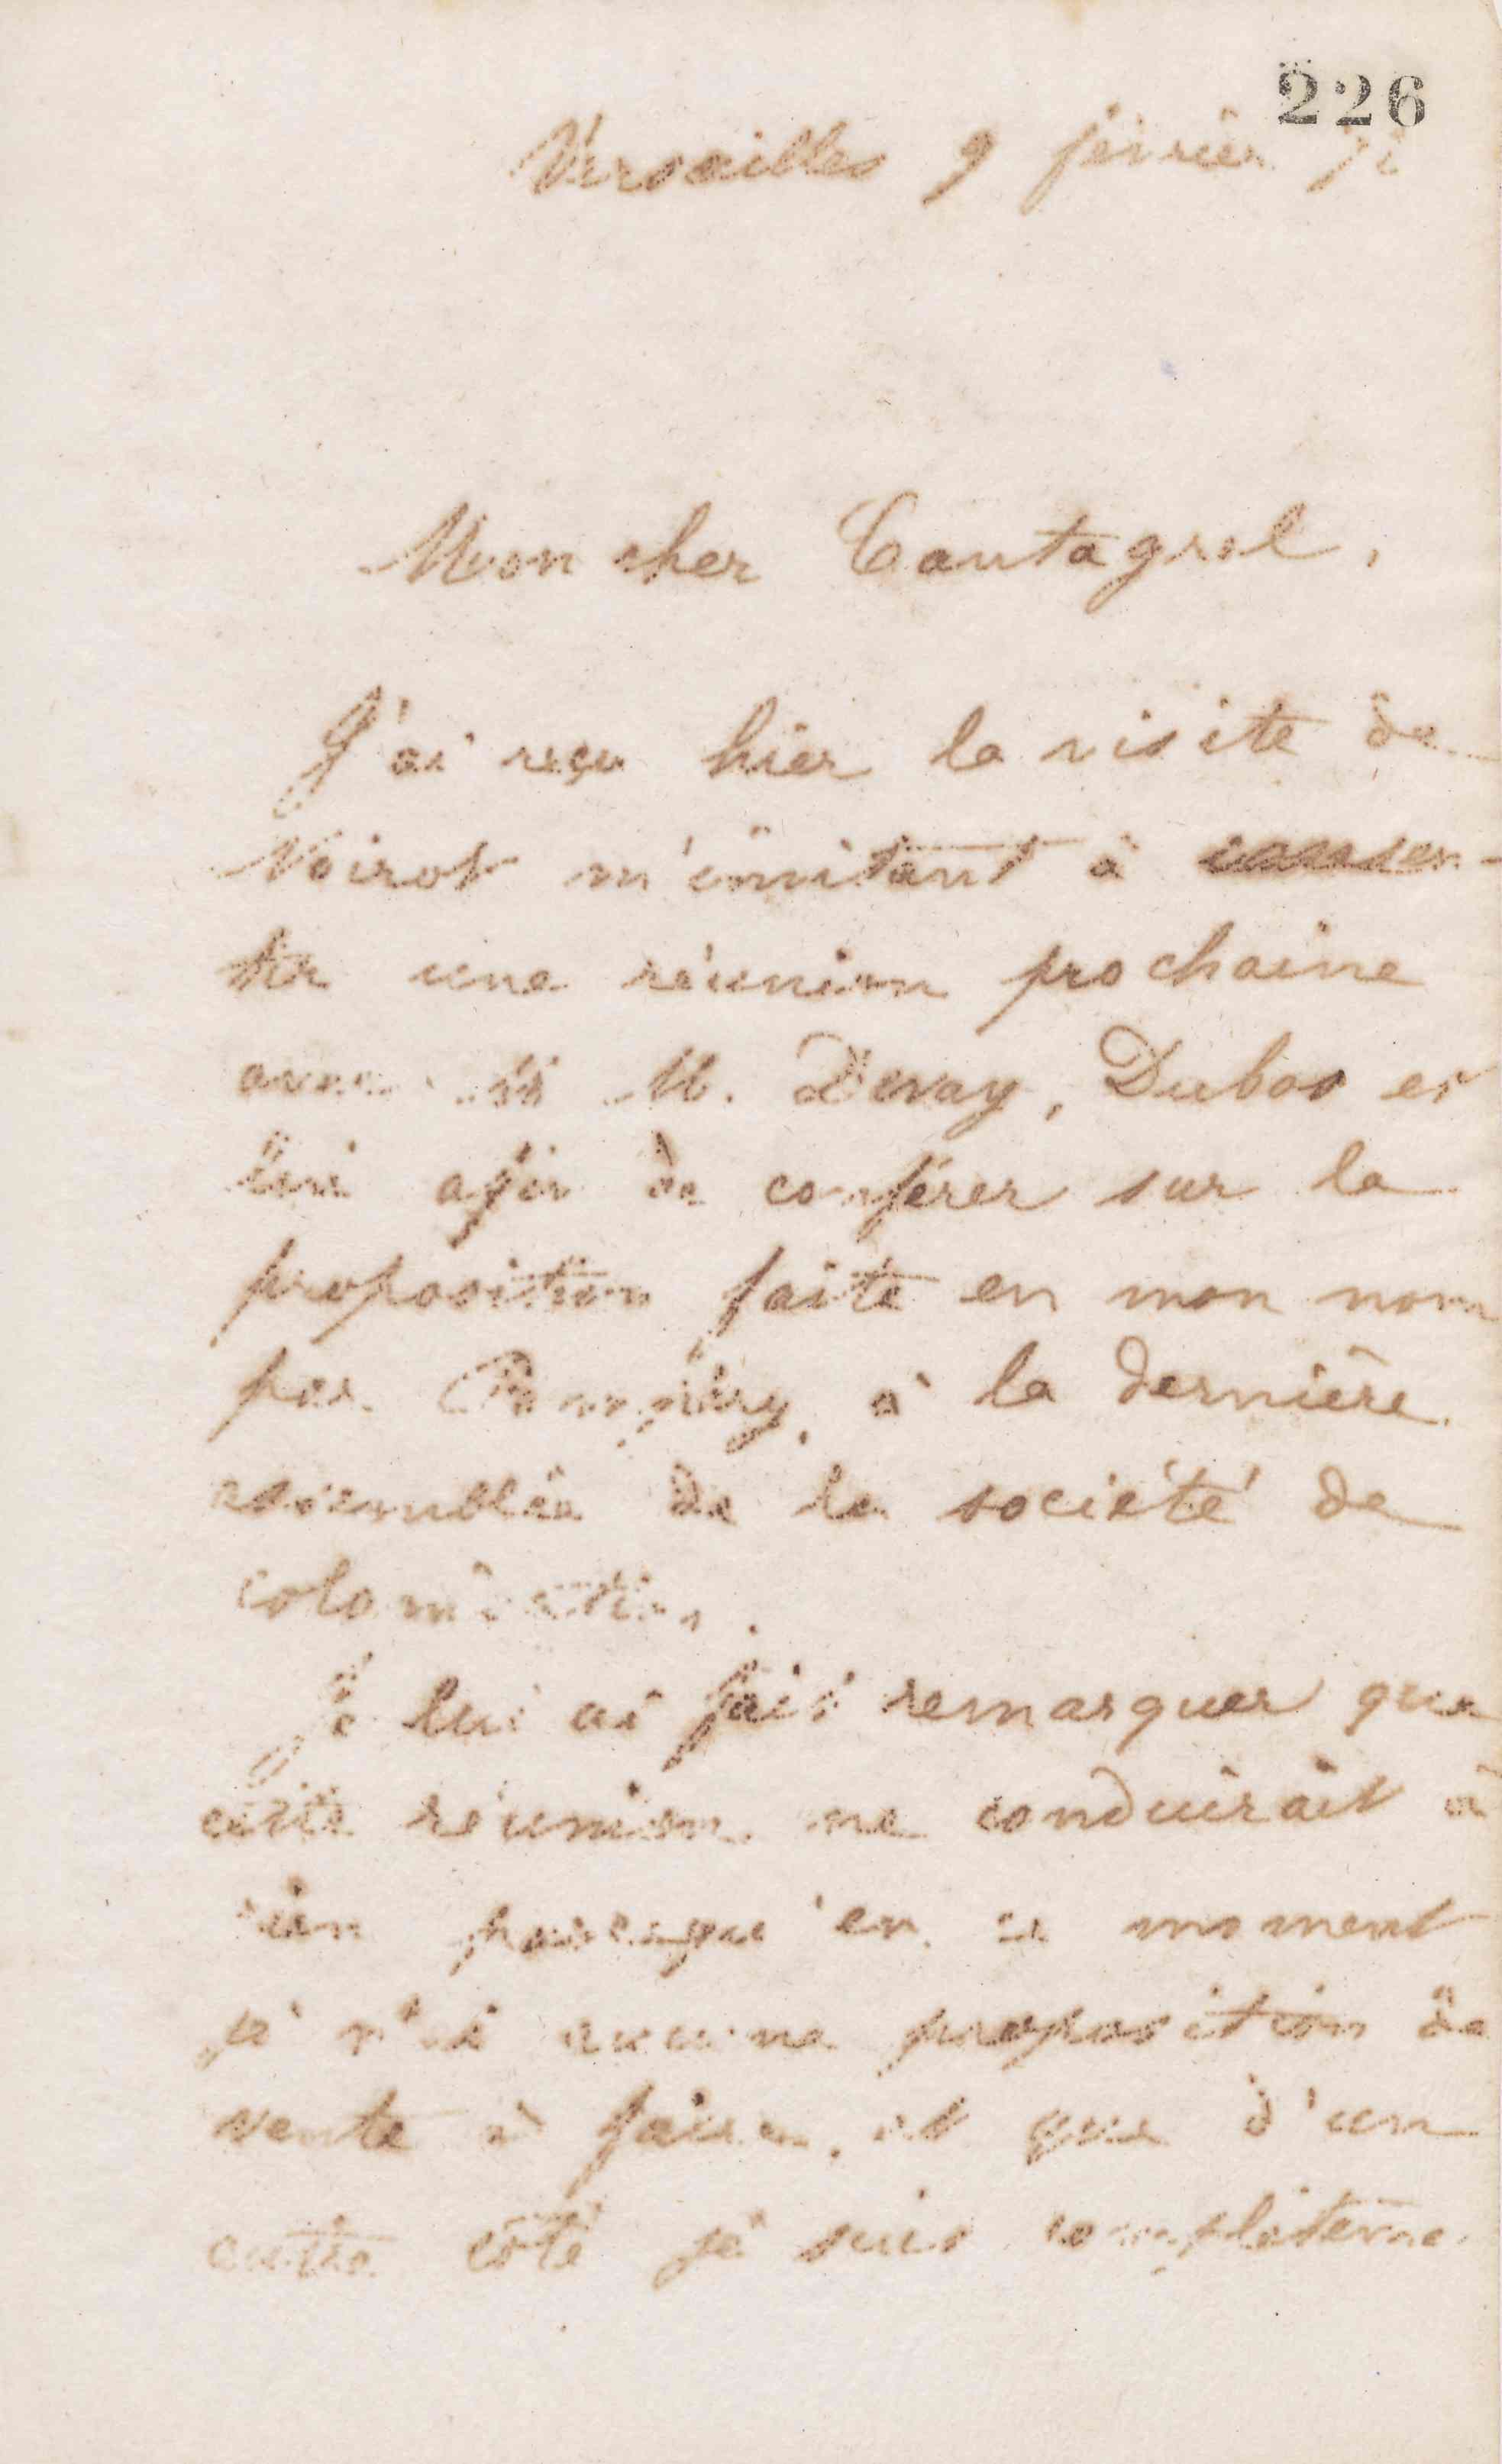 226
Versailles 9 février 72
Mon cher Cantagrel,
J'ai reçu hier la visite de
Noirot m'invitant à
ter une réunion prochaine
avec M. Devay, Dubos et
lui afin de conférer sur la
proposition faite en mon nom
par Pompéry, à la dernière
assemblée de la société de
colonisation.
Je lui ai fait remarquer que
cette réunion ne conduirait à
rien parce qu'en ce moment
je n'ai aucune proposition de
vente à faire, et que d'un
autre côté je suis complèteme